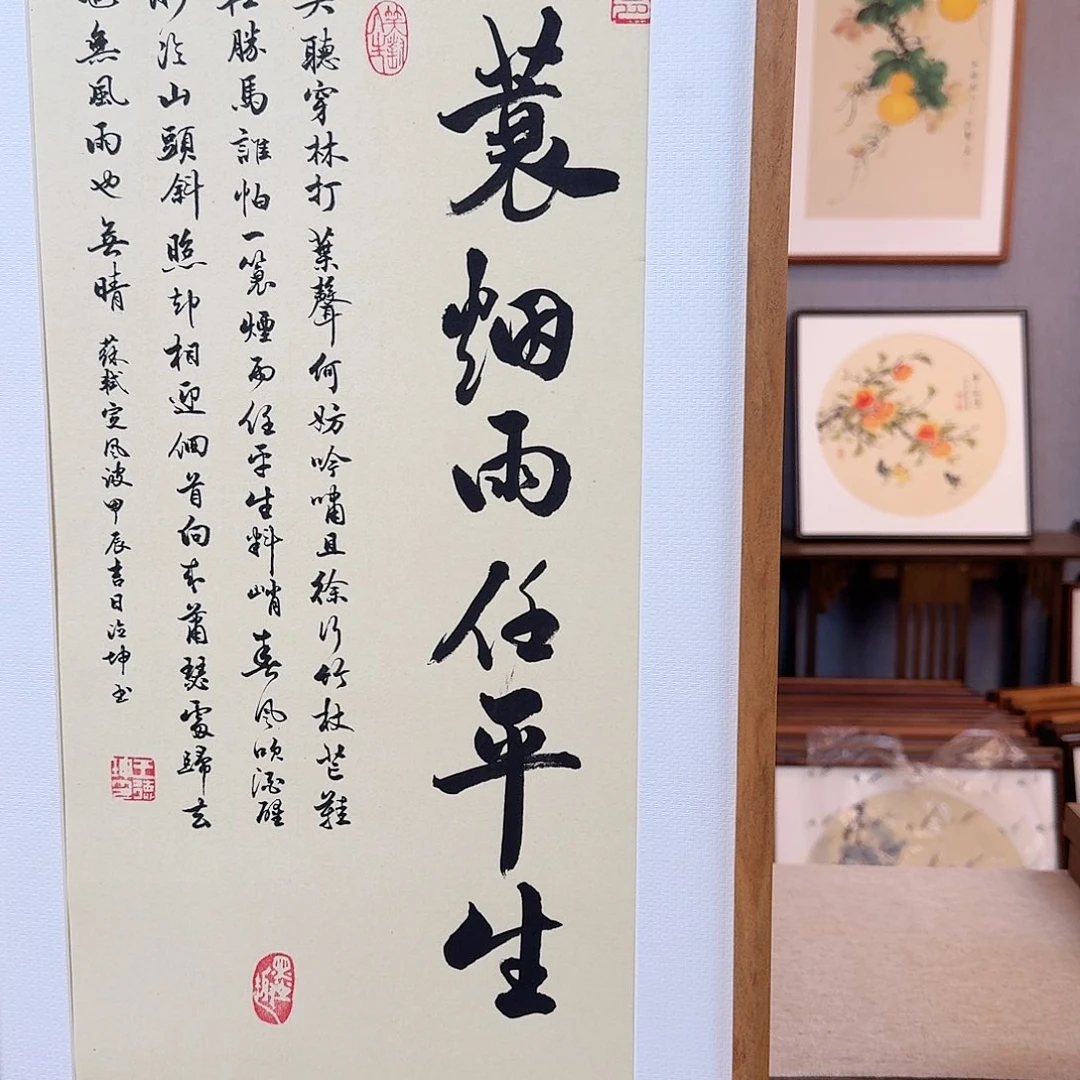 蓑烟雨任平生
聽穿林打葉聲何妨吟嘯且徐行竹杖芒鞋
勝馬誰怕一蓑煙雨任平生料峭春風吹酒醒
冷山頭斜照却相迎回首向來蕭瑟處歸去
也無風雨也無晴 蘇軾定風波甲辰吉日 坤書